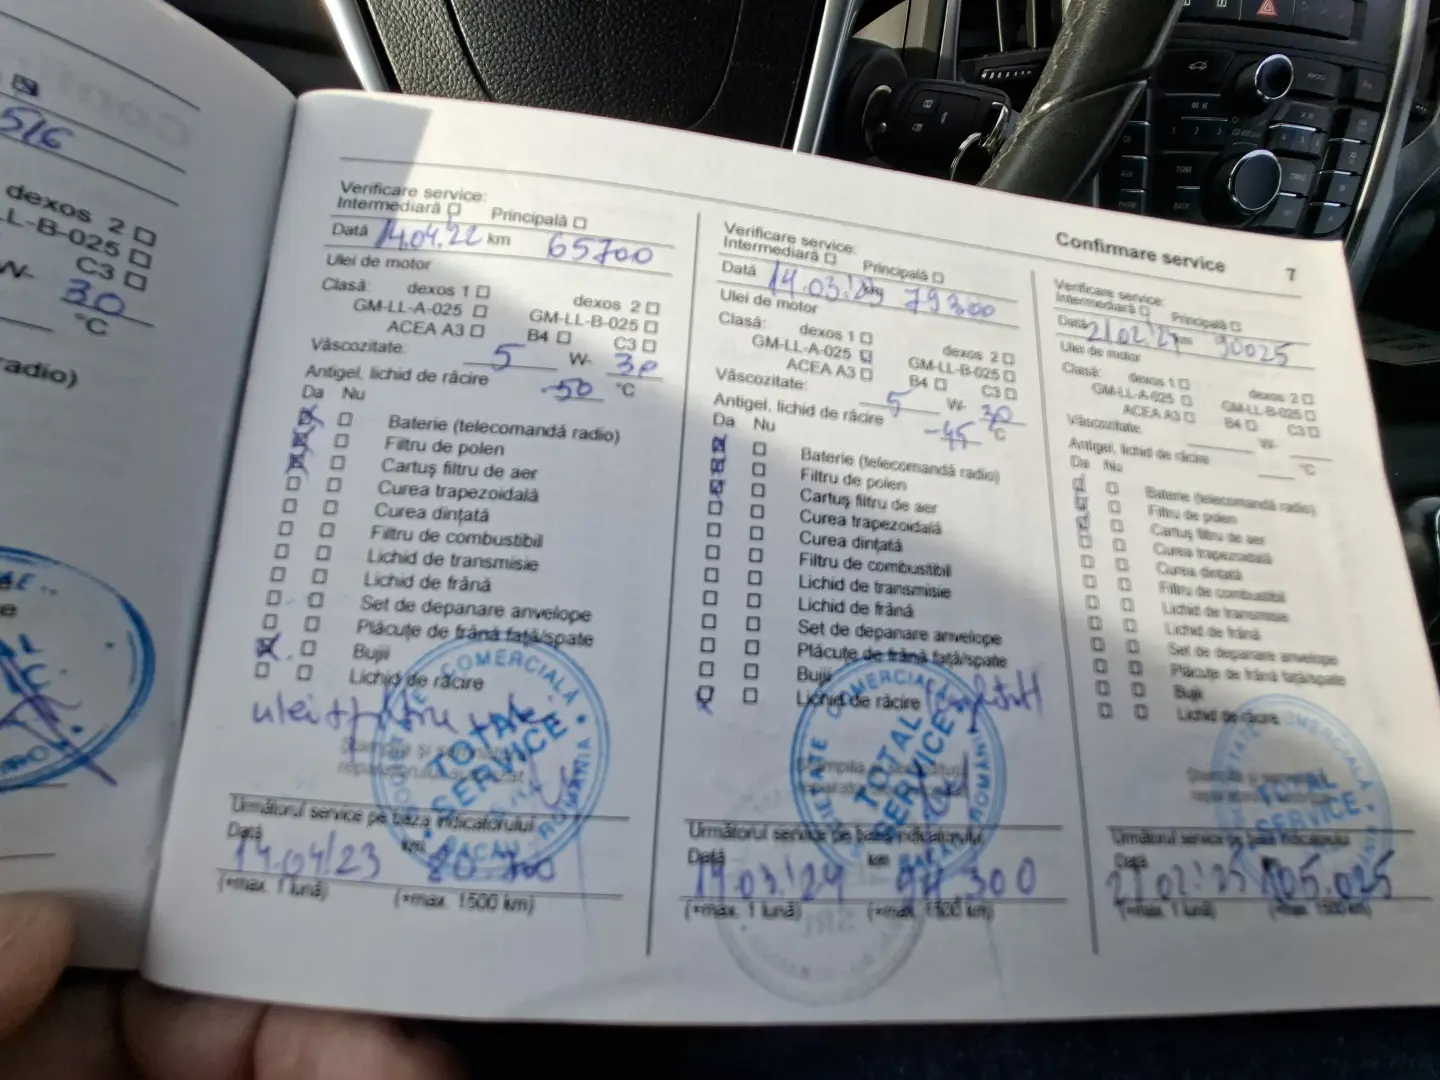 516
dexos 2
LL-B-025
C3
W- 30
°C
radio)
Confirmare service
7
Verificare service:
Intermediară Principală
Dată 14.04.22 km 65700
Ulei de motor
Clasă: dexos 1 dexos 2
GM-LL-A-025 GM-LL-B-025
ACEA A3 B4 C3
Vâscozitate: 5 W- 30
Antigel, lichid de răcire -50 °C
Da Nu
Baterie (telecomandă radio)
Filtru de polen
Cartuş filtru de aer
Curea trapezoidală
Curea dinţată
Filtru de combustibil
Lichid de transmisie
Lichid de frână
Set de depanare anvelope
Plăcuţe de frână faţă/spate
Bujii
Lichid de răcire
TOTAL
SERVICE
Următorul service pe baza indicatorului
Dată km
14.04/23
(*max. 1 lună) (*max. 1500 km)
Verificare service:
Intermediară Principală
Dată 14.03.'23 km 79300
Ulei de motor
Clasă: dexos 1 dexos 2
GM-LL-A-025 GM-LL-B-025
ACEA A3 B4 C3
Vâscozitate: 5 W- 30
Antigel, lichid de răcire -45 °C
Da Nu
Baterie (telecomandă radio)
Filtru de polen
Cartuş filtru de aer
Curea trapezoidală
Curea dinţată
Filtru de combustibil
Lichid de transmisie
Lichid de frână
Set de depanare anvelope
Plăcuţe de frână faţă/spate
Bujii
Lichid de răcire
TOTAL
SERVICE
Următorul service pe baza indicatorului
Dată km
14.03.'24 94.300
(*max. 1 lună) (*max. 1500 km)
Verificare service:
Intermediară Principală
Dată 21.02.'24 km 90025
Ulei de motor
Clasă: dexos 1 dexos 2
GM-LL-A-025 GM-LL-B-025
ACEA A3 B4 C3
Vâscozitate: W-
Antigel, lichid de răcire °C
Da Nu
Baterie (telecomandă radio)
Filtru de polen
Cartuş filtru de aer
Curea trapezoidală
Curea dinţată
Filtru de combustibil
Lichid de transmisie
Lichid de frână
Set de depanare anvelope
Plăcuţe de frână faţă/spate
Bujii
Lichid de răcire
TOTAL
SERVICE
Următorul service pe baza indicatorului
Dată
21.02.'25 105.025
(*max. 1 lună) (*max. 1500 km)